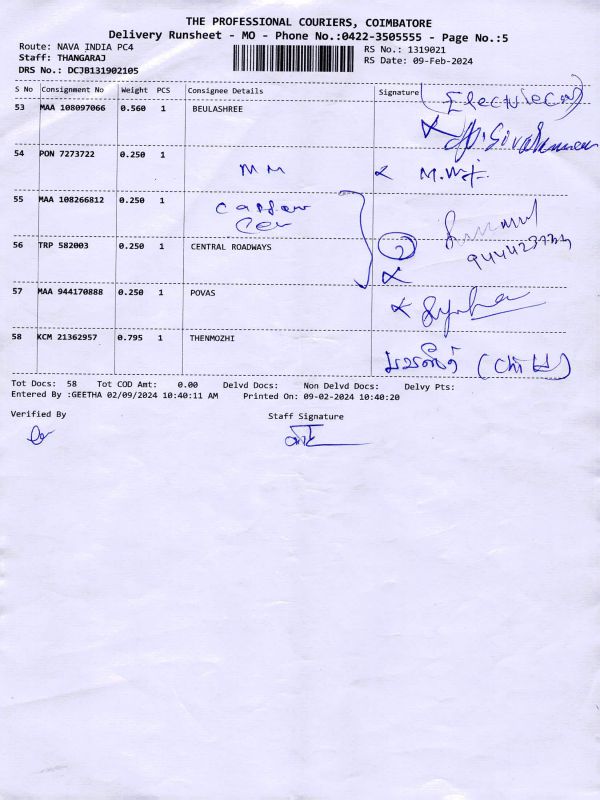 THE PROFESSIONAL COURIERS, COIMBATORE
Delivery Runsheet - MO - Phone No.:0422-3505555 - Page No.:5
Route: NAVA INDIA PC4 RS No.: 1319021
Staff: THANGARAJ RS Date: 09-Feb-2024
DRS No.: DCJB131902105
S No Consignment No Weight PCS Consignee Details Signature
(Electrical)
53 MAA 108097066 0.560 1 BEULASHREE
54 PON 7273722 0.250 1
MM
55 MAA 108266812 0.250 1
56 TRP 582003 0.250 1 CENTRAL ROADWAYS 2
57 MAA 944170888 0.250 1 POVAS
58 KCM 21362957 0.795 1 THENMOZHI
Tot Docs: 58 Tot COD Amt: 0.00 Delvd Docs: Non Delvd Docs: Delvy Pts:
Entered By :GEETHA 02/09/2024 10:40:11 AM Printed On: 09-02-2024 10:40:20
Verified By Staff Signature